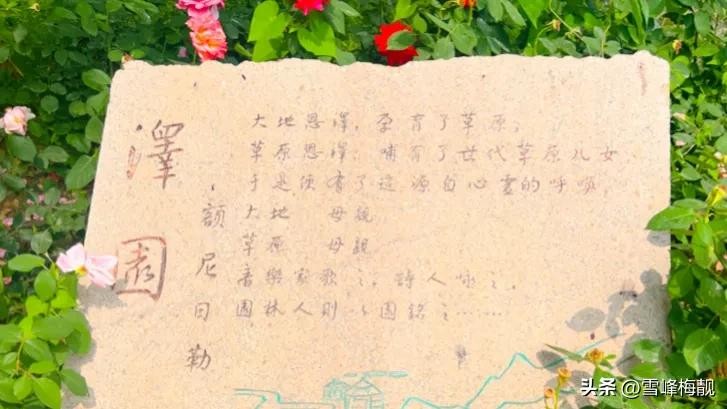 澤園
額尼日勒
大地恩澤，孕育了草原；
草原恩澤 哺育了世代草原儿女，
于是便有了這源自心靈的呼喚，
大地 母親
草原 母親
音樂家歌之，詩人咏之，
園林人則以園銘之……
头条 @雪峰梅靓